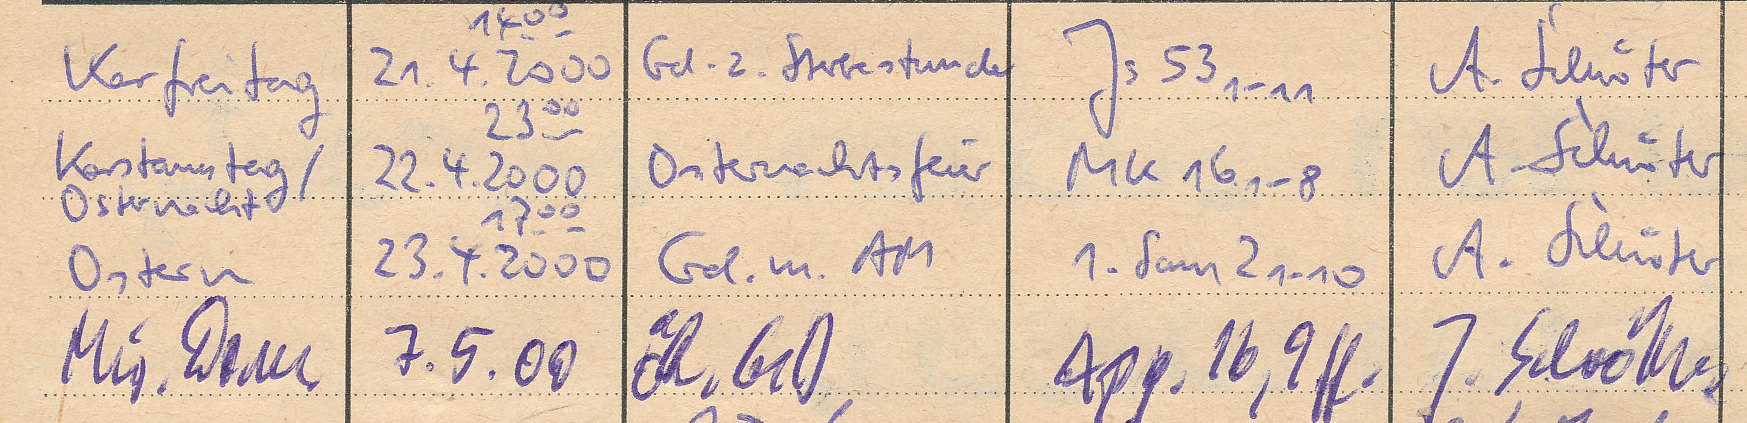 14 00
Karfreitag 21.4.2000 Gd. z. Sterbestunde Js 53 1-11 A. Schröter
23 00
Karsamstag/ 22.4.2000 Osternachtsfeier MK 16 1-8 A. Schröter
Osternacht
17 00
Ostern 23.4.2000 Gd. m. AM 1. Sam 2 1-10 A. Schröter
7.5.00 Apg. 16,9 ff. J.